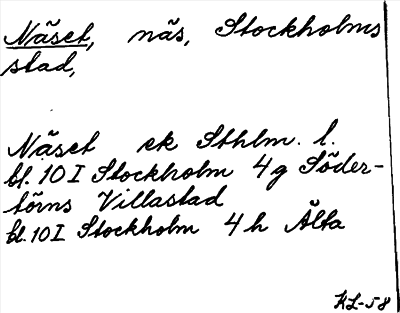 Näset, näs, Stockholms
stad,
Näset ek Sthlm. l.
bl. 10 I Stockholm 4 g Söder-
törns Villastad
bl. 10 I Stockholm 4 h Älta
KL-58